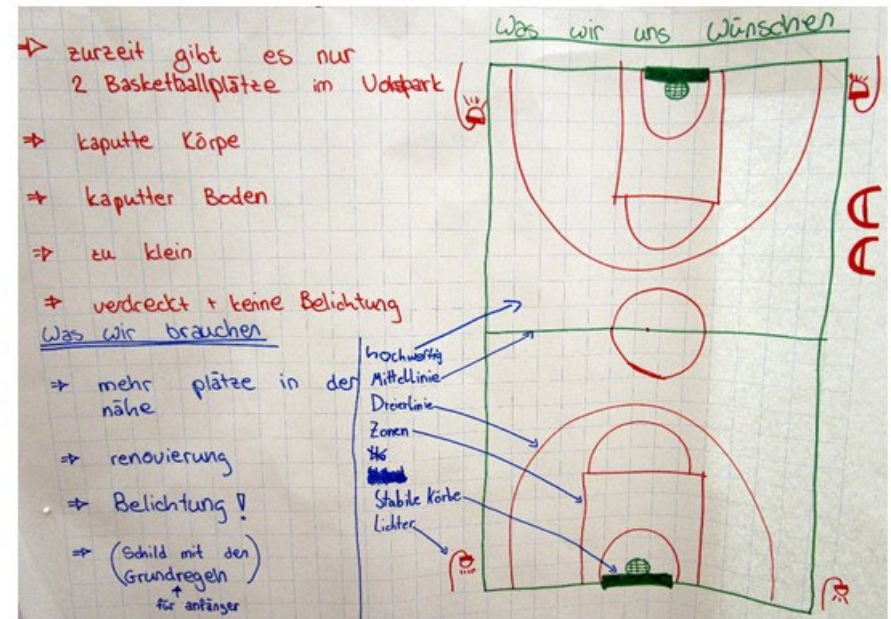 Was wir uns Wünschen
zurzeit gibt es nur
2 Basketballplätze im Volkspark
kaputte Körpe
kaputter Boden
zu klein
verdreckt + keine Belichtung
Was wir brauchen
mehr plätze in der
nähe
renovierung
Belichtung !
(Schild mit den
Grundregeln)
für anfänger
hochwertig
Mittellinie
Dreierlinie
Zonen
Stabile Körbe
Lichter